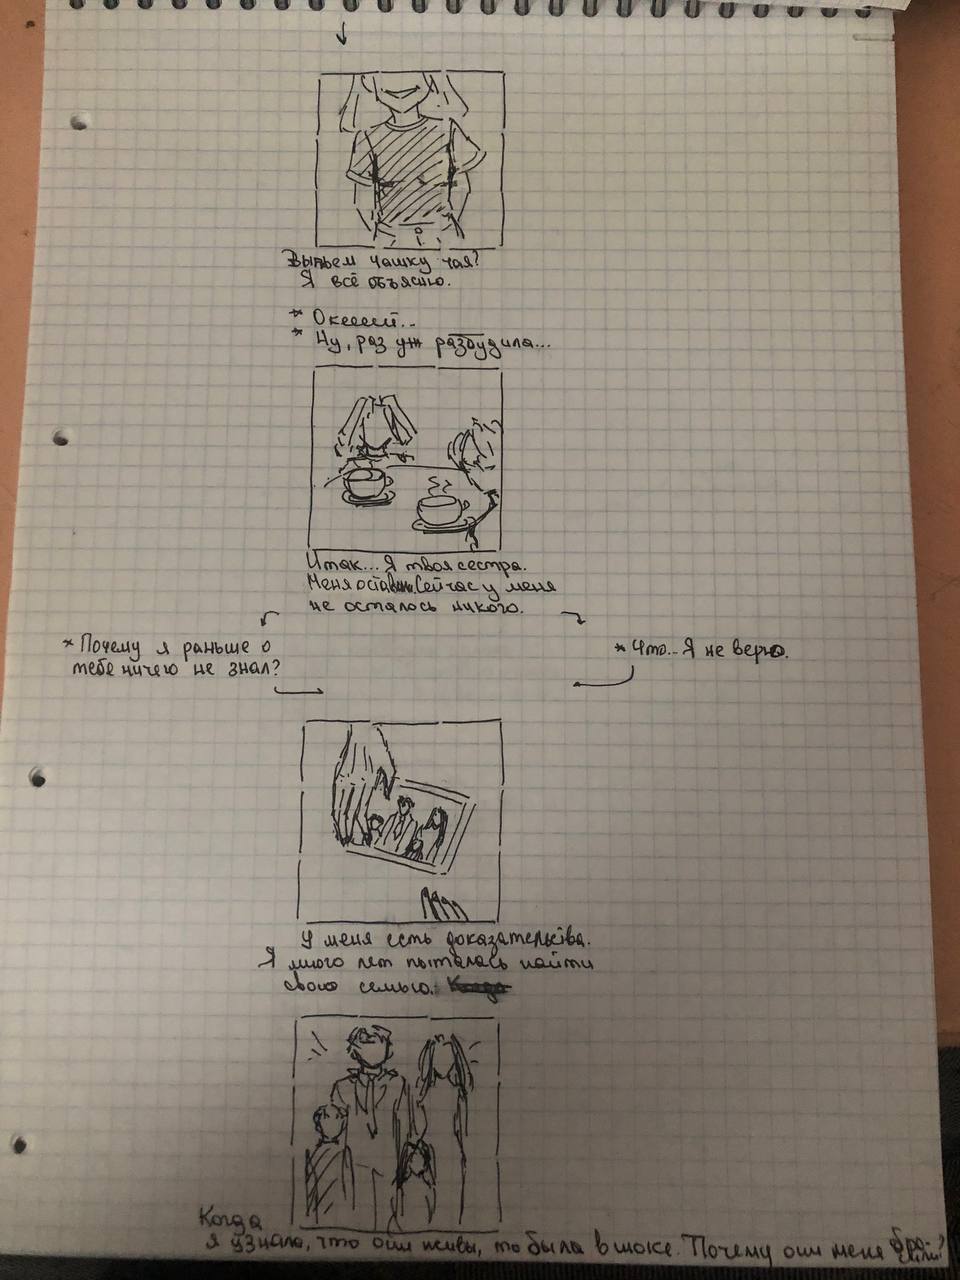 Выпьем чашку чая?
Я всё объясню.
* Океееей...
* Ну, раз уж разбудила...
Итак... Я твоя сестра.
Меня оставили. Сейчас у меня
не осталось никого.
* Почему я раньше о
тебе ничего не знал?
* Что... Я не верю.
У меня есть доказательства.
Я много лет пыталась найти
свою семью.
Когда
я узнала, что они живы, то была в шоке. Почему они меня бро-
сили?